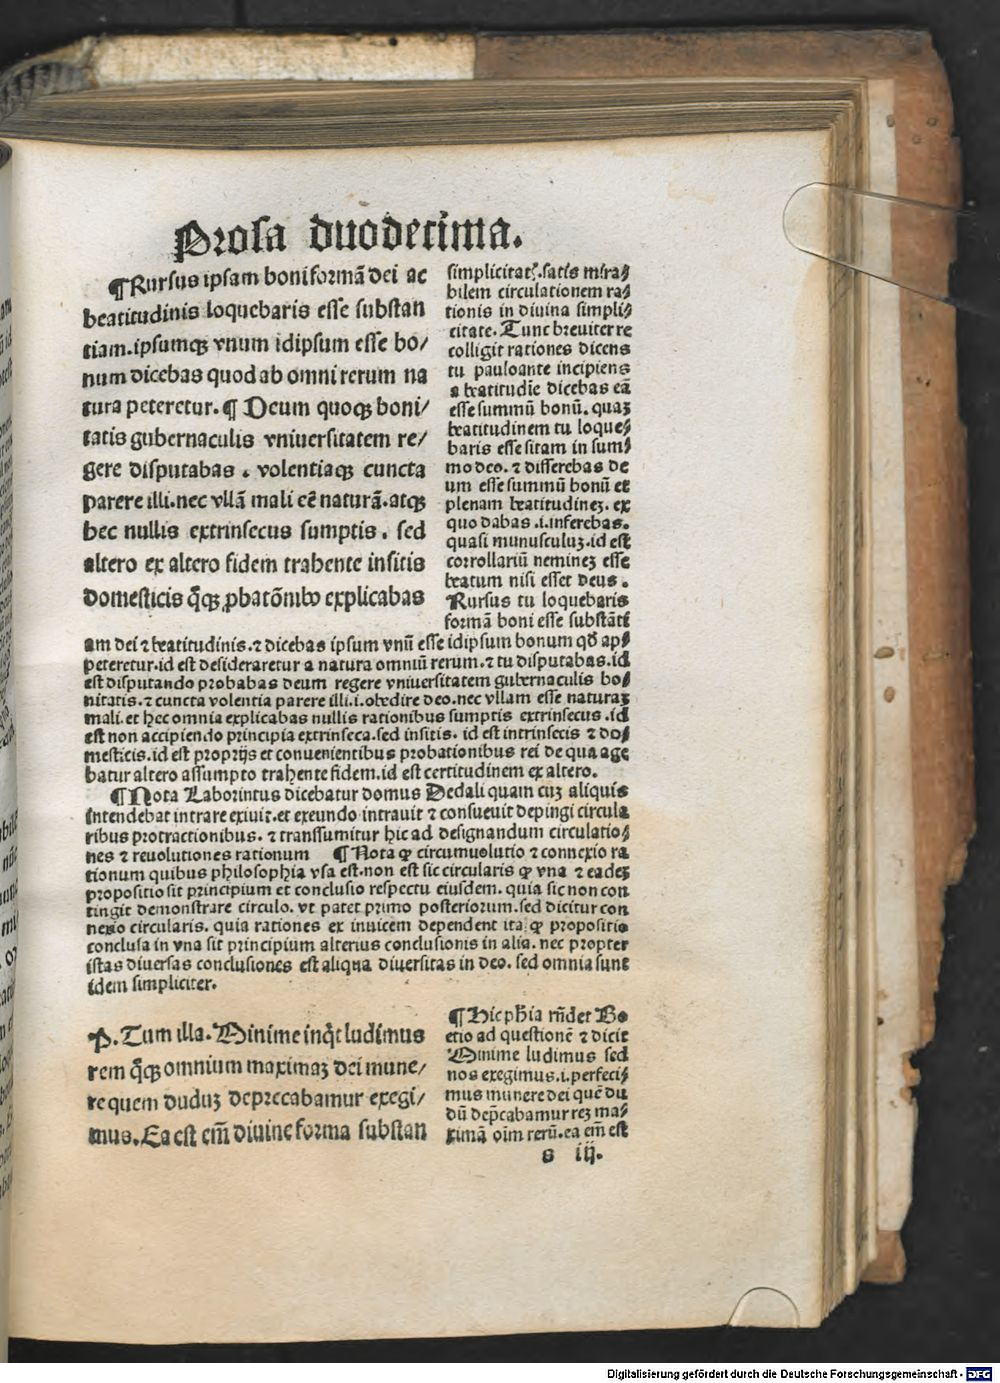 Prosa duodecima.
¶Rursus ipsam boni formā dei ac
beatitudinis loquebaris esse substan
tiam.ipsumqꝫ vnum idipsum esse bo/
num dicebas quod ab omni rerum na
tura peteretur.¶ Deum quoqꝫ boni/
tatis gubernaculis vniuersitatem re/
gere disputabas . volentiaqꝫ cuncta
parere illi.nec vllā mali eē naturā.atqꝫ
hec nullis extrinsecus sumptis . sed
altero ex altero fidem trahente insitis
domesticis q̄qꝫ ꝓbatōnibꝰ explicabas
simplicitatꝭ.satis mira⸗
bilem circulationem ra⸗
tionis in diuina simpli⸗
citate. Tunc breuiter re
colligit rationes dicens
tu pauloante incipiens
a beatitudīe dicebas eā
esse summū bonū. quaꝫ
beatitudinem tu loque⸗
baris esse sitam in sum⸗
mo deo. ⁊ differebas de
um esse summū bonū et
plenam beatitudineꝫ. ex
quo dabas .i.inferebas.
quasi munusculuꝫ.id est
corrollariū nemineꝫ esse
beatum nisi esset deus .
Rursus tu loquebaris
formā boni esse substāti
am dei ⁊ beatitudinis.⁊ dicebas ipsum vnū esse idipsum bonum qd̄ ap⸗
peteretur.id est desideraretur a natura omniū rerum.⁊ tu disputabas.id
est disputando probabas deum regere vniuersitatem gubernaculis bo⸗
nitatis.⁊ cuncta volentia parere illi.i.obedire deo.nec vllam esse naturaꝫ
mali.et hec omnia explicabas nullis rationibus sumptis extrinsecus .id
est non accipiendo principia extrinseca.sed insitis. id est intrinsecis ⁊ do⸗
mesticis.id est proprijs et conuenientibus probationibus rei de qua age
batur altero assumpto trahente fidem.id est certitudinem ex altero.
¶Nota Laborintus dicebatur domus Dedali quam cuꝫ aliquis
intendebat intrare exiuit.et exeundo intrauit ⁊ consueuit depingi circula
ribus protractionibus. ⁊ transsumitur hic ad designandum circulatio⸗
nes ⁊ reuolutiones rationum ¶Nota ꝙ circumuolutio ⁊ connexio ra
tionum quibus philosophia vsa est.non est sic circularis ꝙ vna ⁊ eadeꝫ
propositio sit principium et conclusio respectu eiusdem. quia sic non con
tingit demonstrare circulo. vt patet primo posteriorum.sed dicitur con
nexio circularis. quia rationes ex inuicem dependent ita ꝙ propositio
conclusa in vna sit principium alterius conclusionis in alia. nec propter
istas diuersas conclusiones est aliqua diuersitas in deo. sed omnia sunt
idem simpliciter.
P. Tum illa. Minime inq̄t ludimus
rem q̄qꝫ omnium maximaꝫ dei mune/
re quem duduꝫ deprecabamur exegi/
mus. Ea est em̄ diuine forma substan
¶Hic ph̄ia rn̄det Bo
etio ad questionē ⁊ dicit
Minime ludimus sed
nos exegimus.i.perfeci⸗
mus munere dei quē du
dū dep̄cabamur reꝫ ma⸗
ximā oīm rerū.ea em̄ est
s iij.
Digitalisierung gefördert durch die Deutsche Forschungsgemeinschaft - DFG